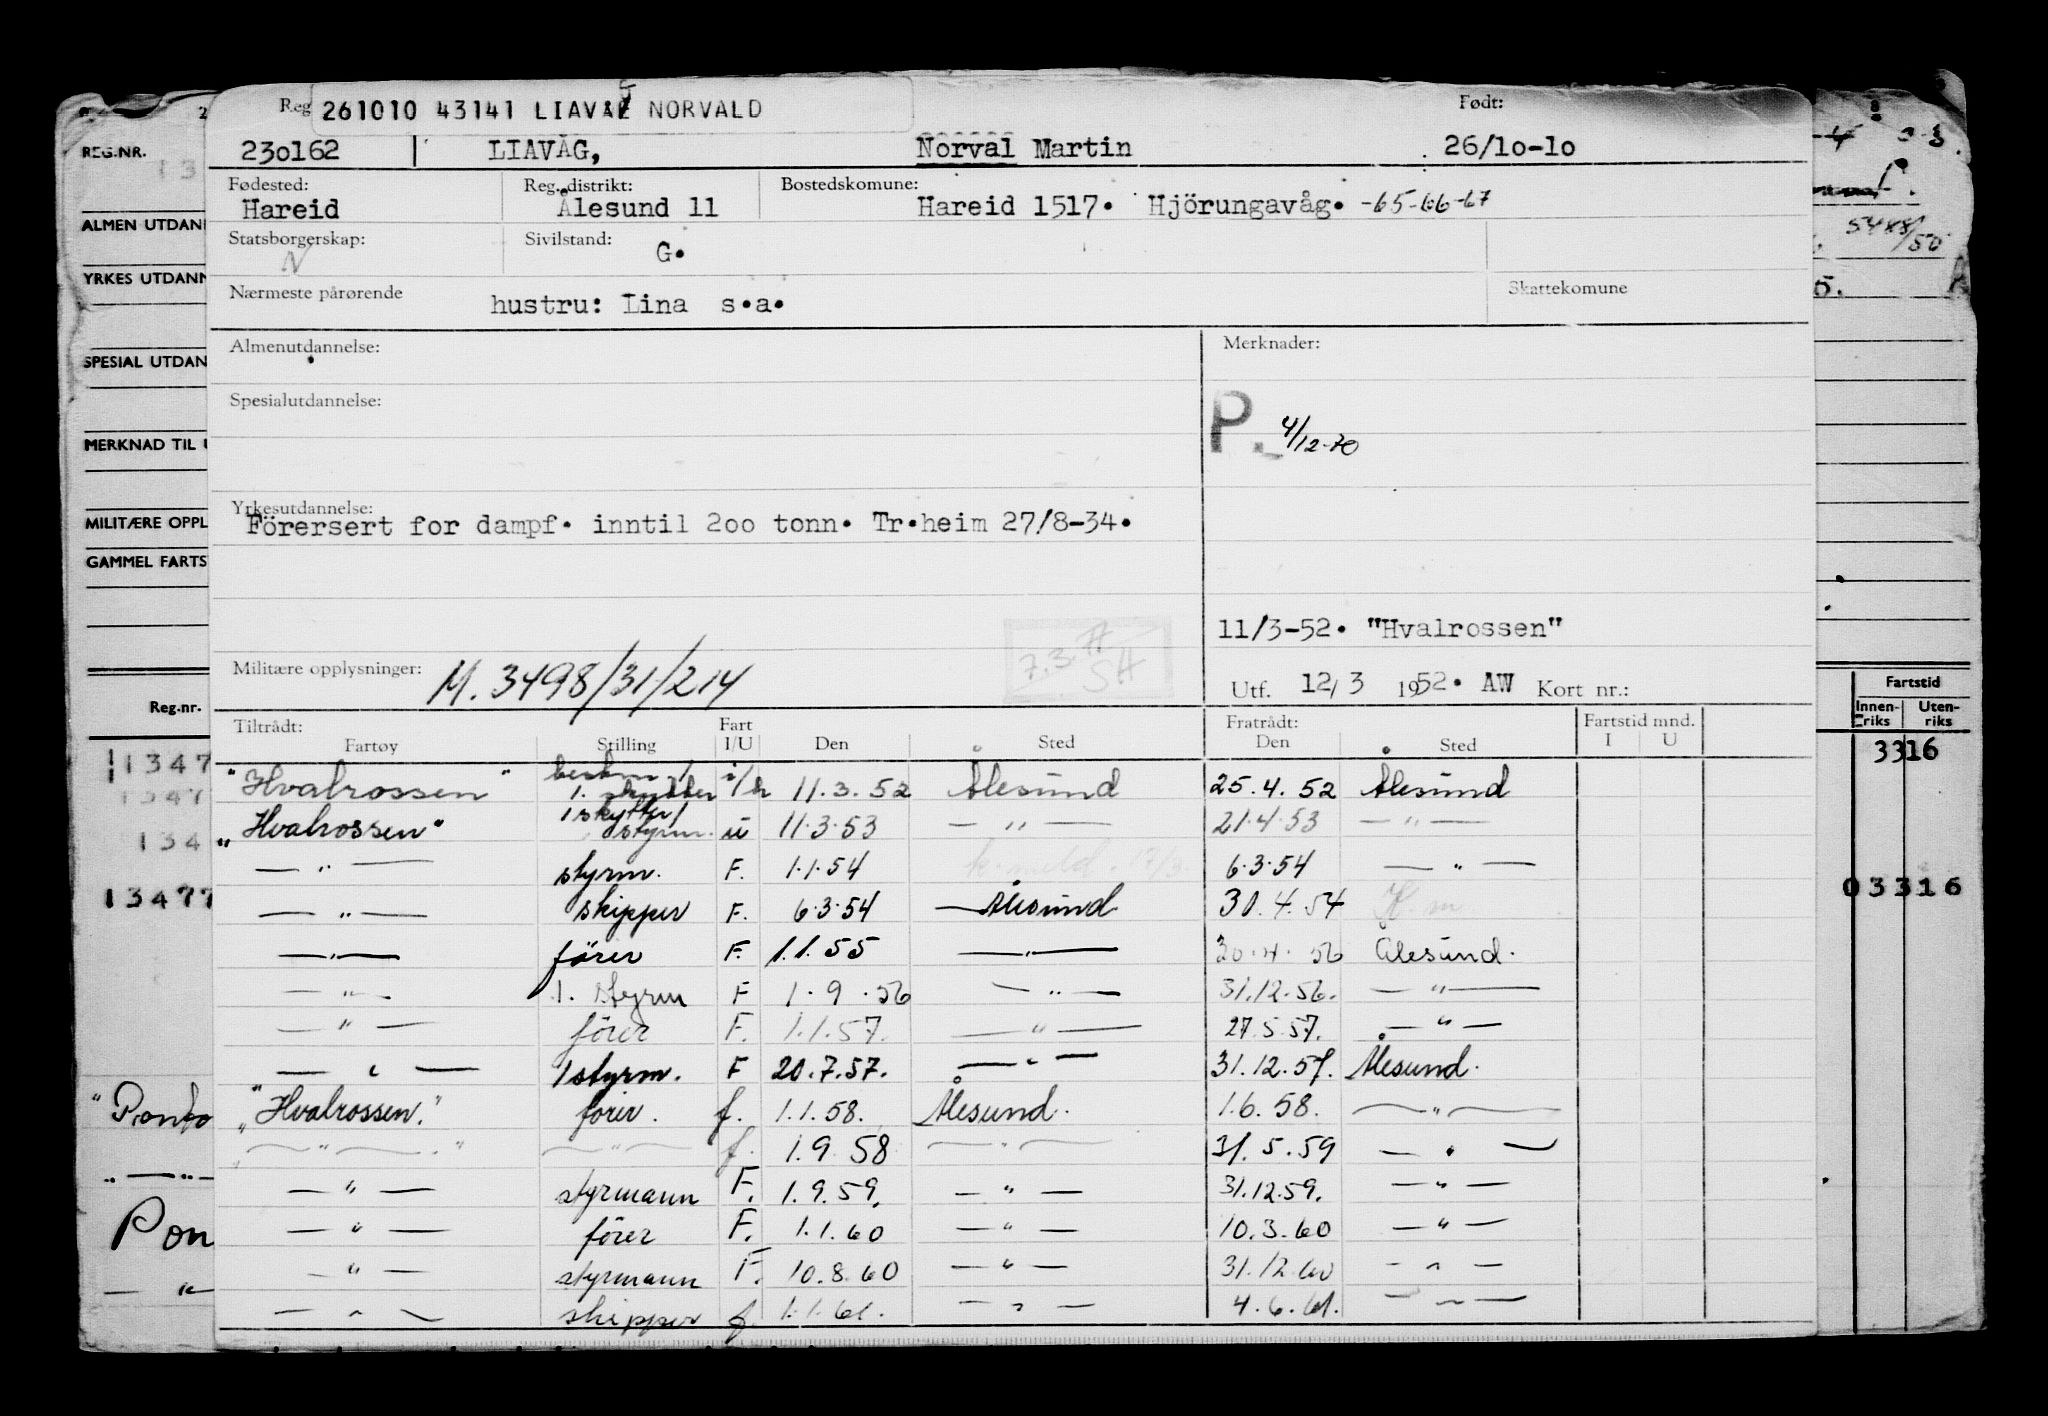 Reg 261010 43141 LIAVÅG NORVALD Født:
230162 LIAVÅG, Norval Martin 26/10-10
Fødested: Reg. distrikt: Bostedskomune:
Hareid Ålesund 11 Hareid 1517. Hjörungavåg. -65-66-67
Statsborgerskap: Sivilstand:
N G.
Nærmeste pårørende hustru: Lina s.a. Skattekomune
Almenutdannelse: Merknader:
Spesialutdannelse:
P. 4/12-70
Yrkesutdannelse:
Förersert for dampf. inntil 200 tonn. Tr.heim 27/8-34.
11/3-52. "Hvalrossen"
7.3.77 SH
Militære opplysninger: M. 3498/31/214
Utf. 12/3 1952. AW Kort nr.:
Tiltrådt: Fart Fratrådt: Fartstid mnd.
Fartøy Stilling I/U Den Sted Den Sted I U
"Hvalrossen" 1. skytter 11.3.52 Ålesund 25.4.52 Ålesund
"Hvalrossen" 1 skytter/ styrm. u 11.3.53 — " — 21.4.53 — " —
— " — styrm. F. 1.1.54 6.3.54 — " —
— " — skipper F. 6.3.54 — Ålesund 30.4.54
— " — förer F. 1.1.55 — " — 30.4.56 Ålesund.
— " — 1. styrm F 1.9.56 — " — 31.12.56. — " —
— " — förer F. 1.1.57. — " — 27.5.57. — " —
— " — 1 styrm. F 20.7.57. — " — 31.12.57. Ålesund.
"Hvalrossen." förer. f. 1.1.58. Ålesund. 1.6.58. — " —
— " — — " — f. 1.9.58 — " — 31.5.59 — " —
— " — styrmann F. 1.9.59. — " — 31.12.59. — " —
— " — förer F. 1.1.60 — " — 10.3.60 — " —
— " — styrmann F. 10.8.60 — " — 31.12.60 — " —
— " — skipper f. 1.1.61. — " — 4.6.61. — " —
REG.NR.
ALMEN UTDANN
YRKES UTDANN
SPESIAL UTDAN
MERKNAD TIL U
MILITÆRE OPPL
GAMMEL FARTS
Reg.nr.
1347
1347
134
13477
"Ponto
— " —
Pon
— "
5488/50
5.
Fartstid
Innen-riks Uten-riks
3316
03316